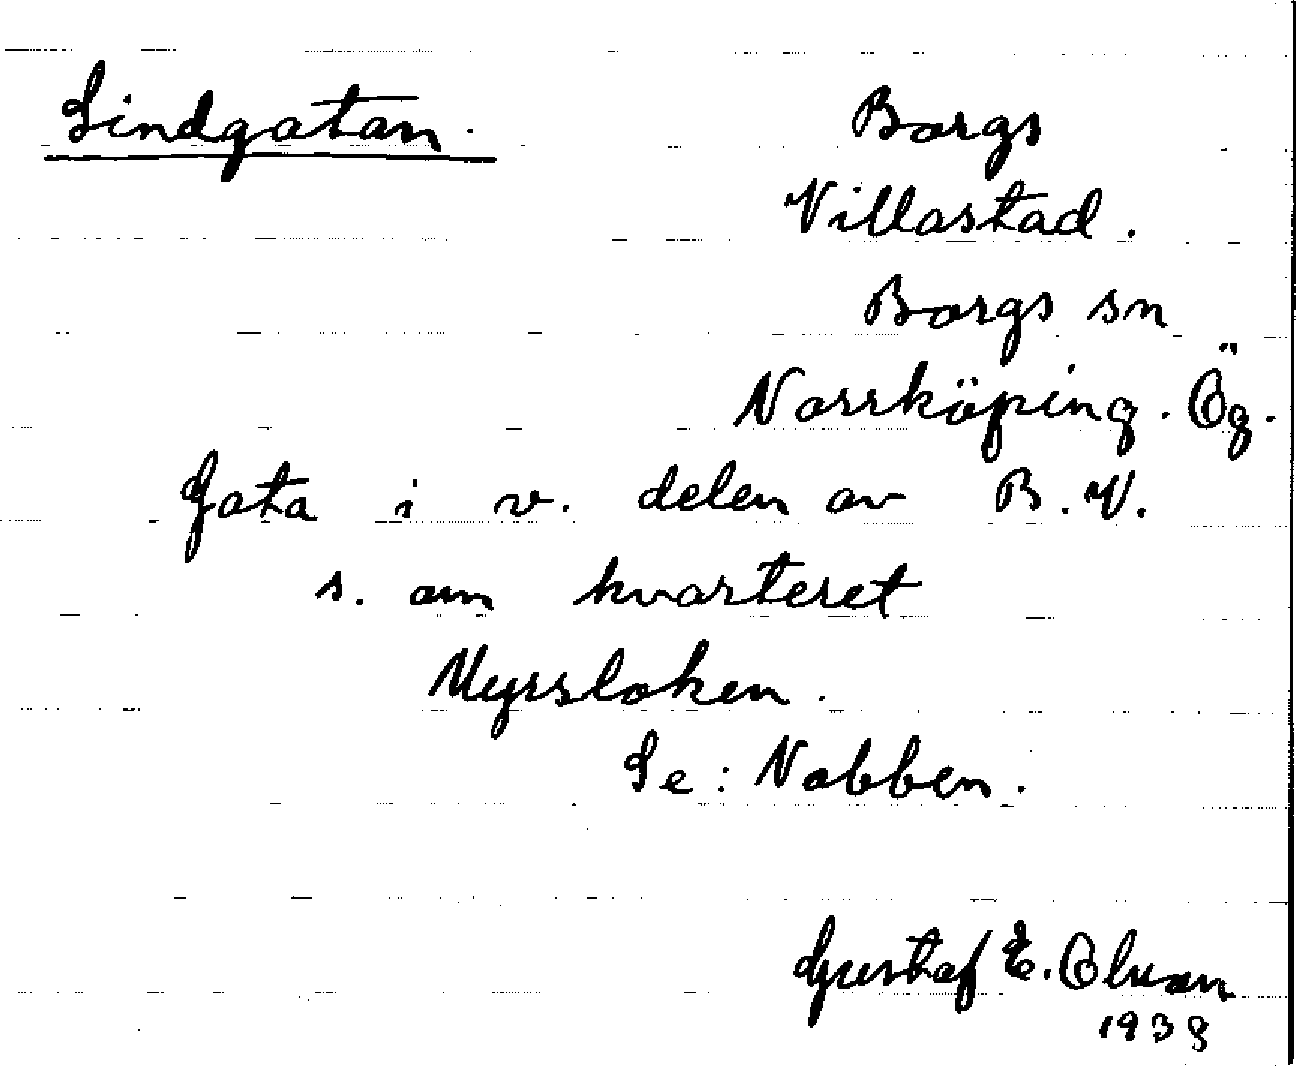 Sindgatan.
Borgs
Villastad.
Borgs sn
Norrköping. Ög.
Gata i v. delen av B.V.
s. om kvarteret
Myrsloken.
Se: Nabben.
Gustaf E. Olsson
1938